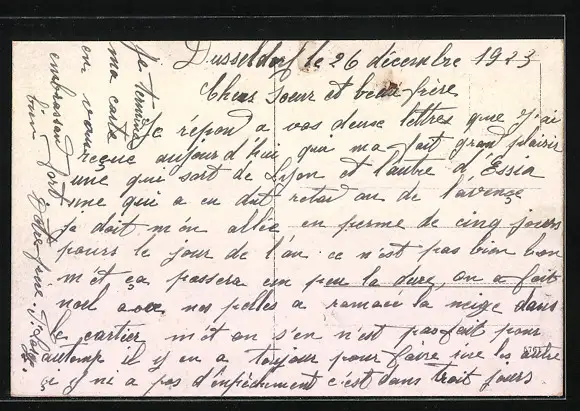 Dusseldorf le 26 décembre 1923
Chers Soeur et beau frère
Je répond a vos deuse lettres que j'ai
reçue aujourd'hui que ma fait grand plaisir
une qui sort de Lyon et l'autre d'Essia
une qui a eu du retard ou de l'avençe
je doit m'en allée en perme de cinq jours
pours le jour de l'an. ce n'est pas bien bon
mét ça passera un peu la dure, on a fait
noel avec nos pelles a ramacer la neige dans
le cartier mét on s'en n'est pas fait pour
autemp il y en a toujour pour faire rire les autre
il y ni a pas d'enpéchement c'est dans troit jours
Je termine
ma carte
en vous
embrassan
bien fort
Votre frère